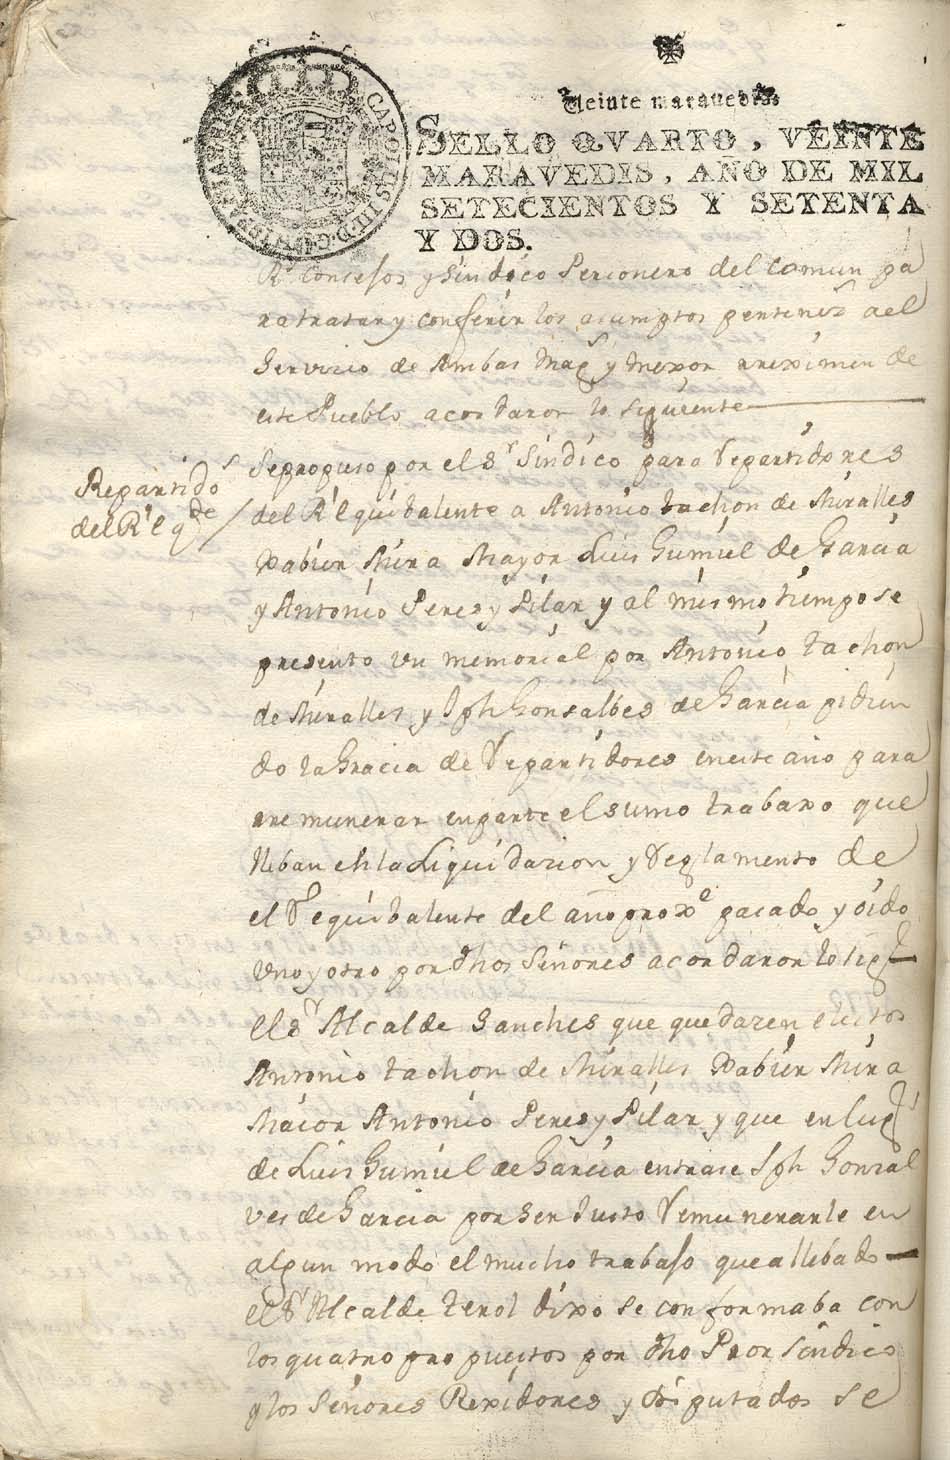 Veinte maravedis.
SELLO QVARTO, VEINTE
MARAVEDIS, AÑO DE MIL
SETECIENTOS Y SETENTA
Y DOS.
CAROLUS III D. G. HISPANIAR. REX
Rl Consesos y Sindico Personero del Comun pa
ra tratar y conferir los asumptos pertenez. a el
Servicio de Ambas Mags y mexor rreximen de
este Pueblo acordaron lo siguiente
Repartidos
del Rl eqde
Se propuso por el Sr Sindico para Repartidores
del Rl equibalente a Antonio tachon de Miralles
Xabier Mira Mayor Luis Gumiel de Garcia
y Antonio Peres y Pilar y al mismo tiempo se
presento un memorial por Antonio tachon
de Miralles y Jph Gonsalbes de Garcia pidien
do la Gracia de Repartidores en este año para
rremunerar en parte el sumo trabaxo que
lleban en la Liquidazion y Reglamento de
el Rl equibalente del año proxo pasado y oido
uno y otro por dhos Señores acordaron lo sigte
el Sr Alcalde Sanches que quedazen electos
Antonio tachon de Miralles Xabier Mira
Maior Antonio Peres y Pilar y que en lugr
de Luis Gumiel de Garcia entrase Jph Gonzal
ves de Garcia por ser Justo Remunerarle en
algun modo el mucho trabajo que a llebado
el Sr Alcalde terol dixo se conformaba con
los quatro propuestos por dho Pror Sindico
y los Señores Rexidores y Diputados se